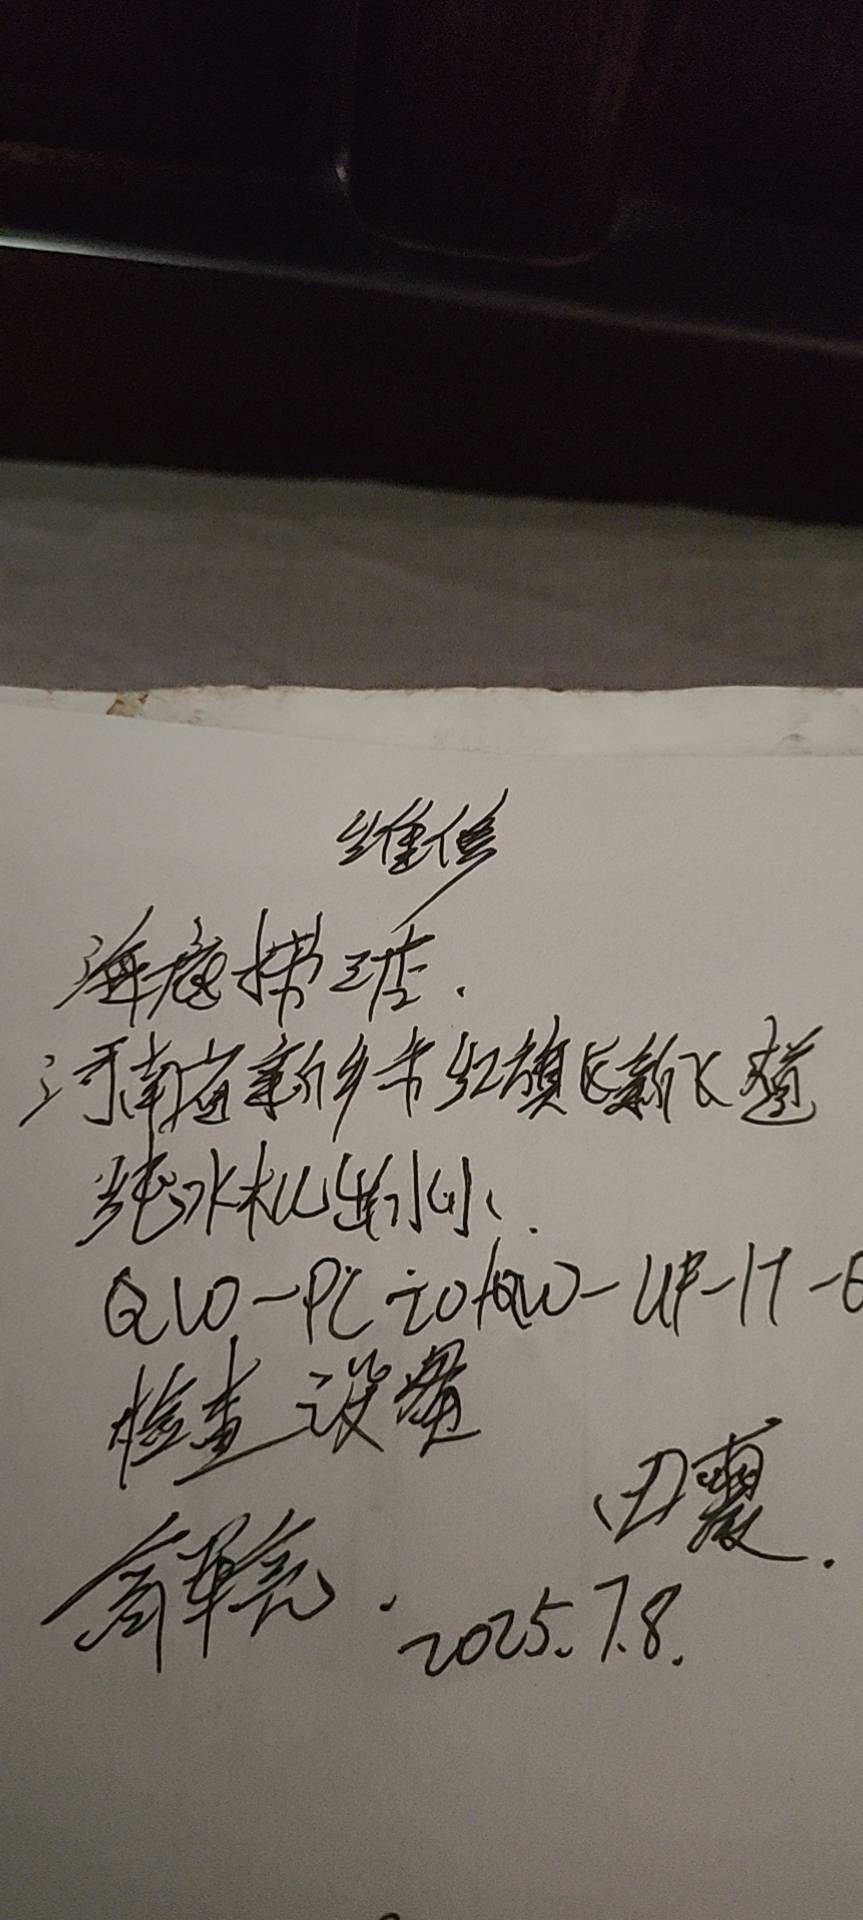 维修
海底捞三店.
河南省新乡市红旗区新飞大道
纯水机出水小、.
QW-PC
检查设备
田
军亮.
2025.7.8.